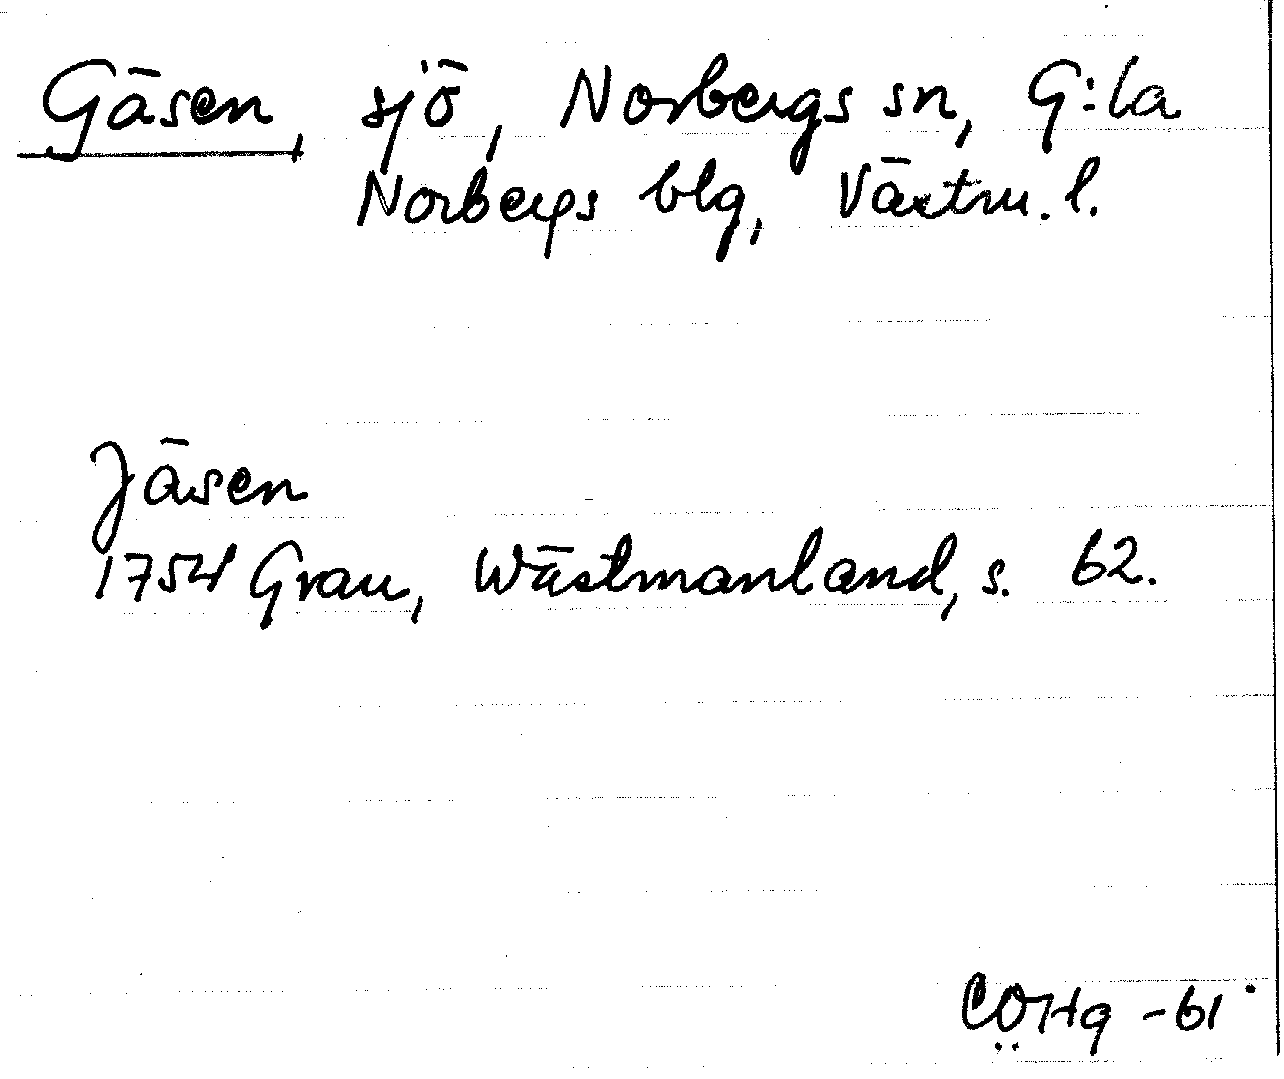 Gäsen, sjö, Norbergs sn, G:la
Norbergs blg, Västm. l.
Jäsen
1754 Grau, Wästmanland, s. 62.
CÖHg -61